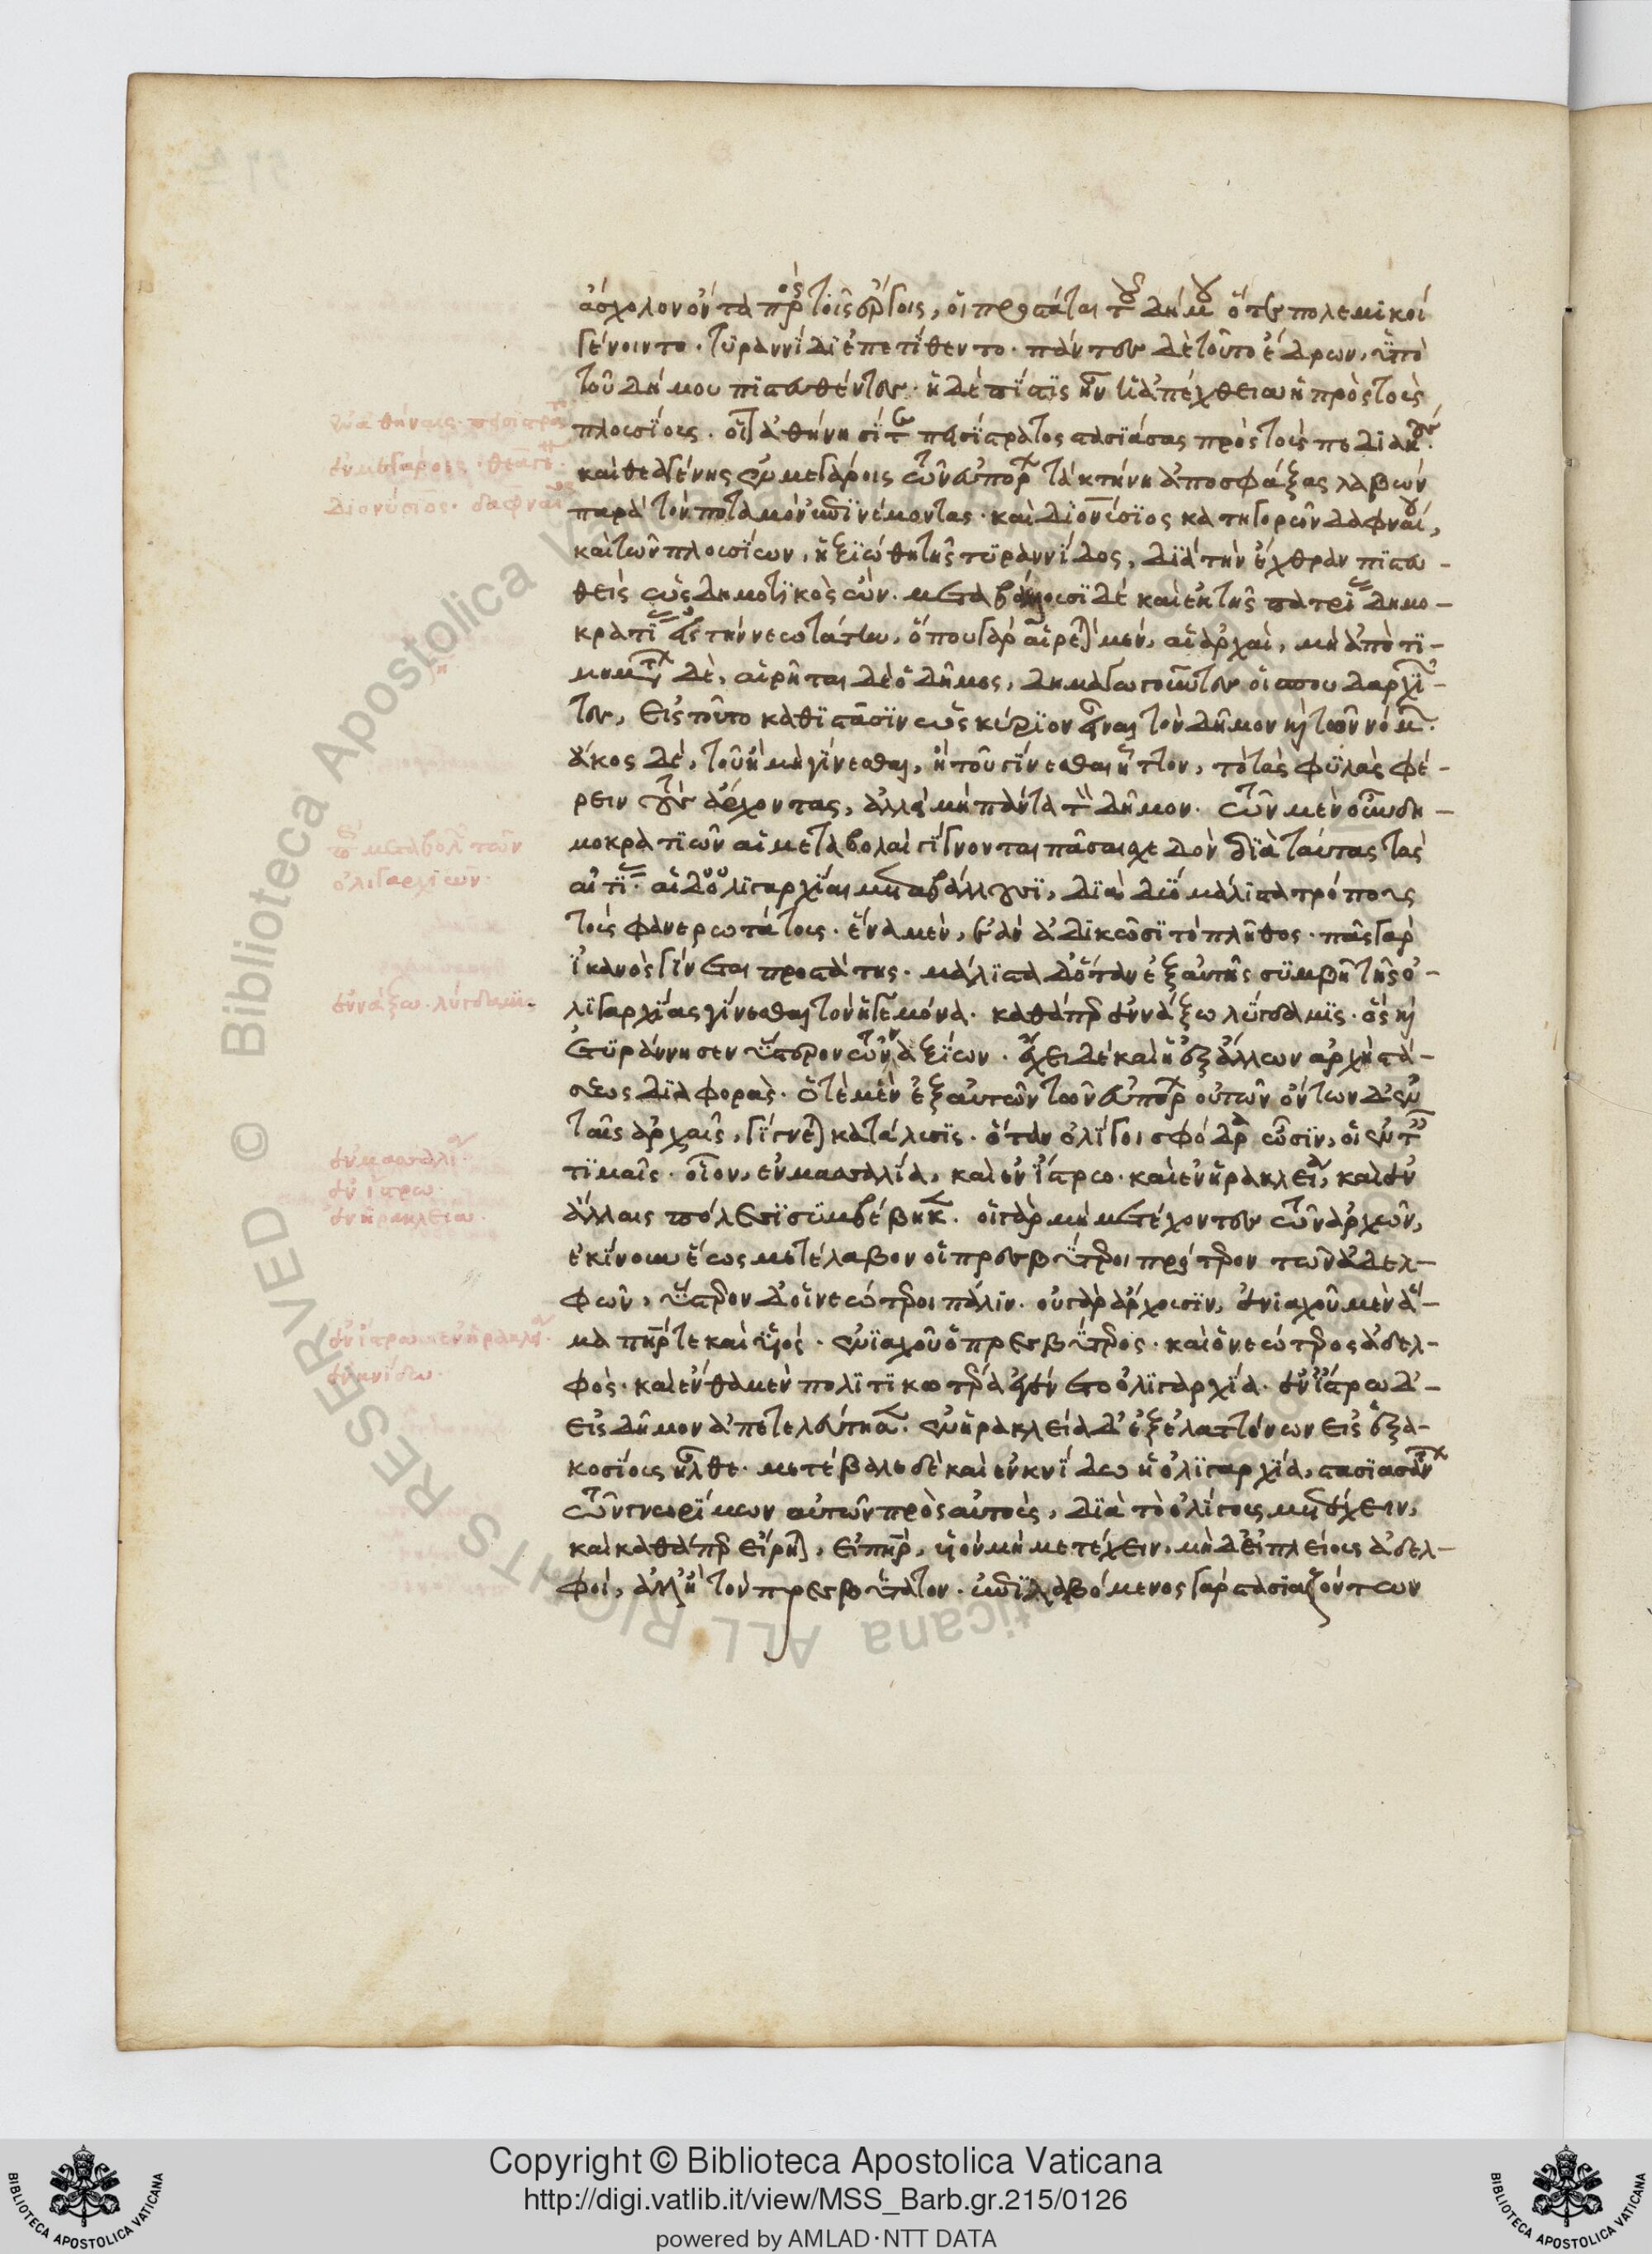 ἄσχολον ὄντα πρὸς τοῖς ἔργοις, οἱ προστάται τοῦ δήμου ὅτε πολεμικοὶ
γένοιντο. τυραννίδι ἐπετίθεντο. πάντες δὲ τοῦτο ἔδρων, ὑπὸ
τοῦ δήμου πιστευθέντες. ἡ δὲ πίστις ἦν ἡ ἀπέχθεια ἡ πρὸς τοὺς
πλουσίους. οἷον ἀθήνησί τε πεισίστρατος στασιάσας πρὸς τοὺς πεδιακούς.
καὶ θεαγένης ἐν μεγάροις τῶν εὐπόρων τὰ κτήνη ἀποσφάξας λαβὼν
παρὰ τὸν ποταμὸν ἐπινέμοντας. καὶ διονύσιος κατηγορῶν δαφναίου,
καὶ τῶν πλουσίων, ἠξιώθη τῆς τυραννίδος, διὰ τὴν ἔχθραν πιστευ-
θεὶς ὡς δημοτικὸς ὤν. μεταβάλλουσι δὲ καὶ ἐκ τῆς πατρίας δημο-
κρατίας εἰς τὴν νεωτάτην. ὅπου γὰρ αἱρεταὶ μὲν, αἱ ἀρχαὶ, μὴ ἀπὸ τι-
μημάτων δὲ, αἱρεῖται δὲ ὁ δῆμος, δημαγωγοῦντες οἱ σπουδαρχιῶν-
τες, εἰς τοῦτο καθιστᾶσιν ὡς κύριον εἶναι τὸν δῆμον καὶ τῶν νόμων.
ἄκος δὲ, τοῦ ἢ μὴ γίνεσθαι, ἢ τοῦ γίνεσθαι ἧττον, τὸ τὰς φυλὰς φέ-
ρειν τοὺς ἄρχοντας, ἀλλὰ μὴ πάντα τὸν δῆμον. τῶν μὲν οὖν δη-
μοκρατιῶν αἱ μεταβολαὶ γίγνονται πᾶσαι σχεδὸν διὰ ταύτας τὰς
αἰτίας. αἱ δ' ὀλιγαρχίαι μεταβάλλουσι, διὰ δύο μάλιστα τρόπους
τοὺς φανερωτάτους. ἕνα μὲν, ἐὰν ἀδικῶσι τὸ πλῆθος. πᾶς γὰρ
ἱκανὸς γίνεται προστάτης. μάλιστα δ' ὅταν ἐξ αὐτῆς συμβῇ τῆς ὀ-
λιγαρχίας γίνεσθαι τὸν ἡγεμόνα. καθάπερ ἐν νάξω λύγδαμις. ὃς καὶ
ἐτυράννησεν ὕστερον τῶν ναξίων. ἔχει δὲ καὶ ἡ ἐξ ἄλλων ἀρχὴ στά-
σεως διαφοράς. ὁτὲ μὲν ἐξ αὐτῶν τῶν εὐπόρων οὐ τῶν ὄντων δ' ἐν
ταῖς ἀρχαῖς, γίγνεται κατάλυσις. ὅταν ὀλίγοι σφόδρα ὦσιν, οἱ ἐν ταῖς
τιμαῖς. οἷον, ἐν μασσαλία, καὶ ἐν ἴστρω. καὶ ἐν ἡρακλεία, καὶ ἐν
ἄλλαις πόλεσι συμβέβηκε. οἱ γὰρ μὴ μετέχοντες τῶν ἀρχῶν,
ἐκίνουν ἕως μετέλαβον οἱ πρεσβύτεροι πρότερον τῶν ἀδελ-
φῶν, ὕστερον δ' οἱ νεώτεροι πάλιν. οὐ γὰρ ἄρχουσιν, ἐνιαχοῦ μὲν ἅ-
μα πατήρ τε καὶ υἱός. ἐνιαχοῦ ὁ πρεσβύτερος. καὶ ὁ νεώτερος ἀδελ-
φός. καὶ ἔνθα μὲν πολιτικωτέρα ἐγένετο ὀλιγαρχία. ἐν ἴστρω δ'
εἰς δῆμον ἀπετελεύτησεν. ἐν ἡρακλεία δ' ἐξ ἐλαττόνων εἰς ἑξα-
κοσίους ἦλθε. μετέβαλε δὲ καὶ ἐν κνίδω ἡ ὀλιγαρχία, στασιασάντων
τῶν γνωρίμων αὐτῶν πρὸς αὐτοὺς, διὰ τὸ ὀλίγους μετέχειν,
καὶ καθάπερ εἴρηται, εἰ πατήρ, υἱὸν μὴ μετέχειν. μηδ' εἰ πλείους ἀδελ-
φοί, ἀλλ' ἢ τὸν πρεσβύτατον. ἐπιλαβόμενος γὰρ στασιαζόντων
ἐν ἀθήναις. πεισίστρατος
ἐν μεγάροις. θεαγένης.
διονύσιος. δαφναῖος
μεταβολὴ τῶν
ὀλιγαρχιῶν.
ἐν νάξω. λύγδαμις.
ἐν μασσαλία.
ἐν ἴστρω.
ἐν ἡρακλεία.
ἐν ἴστρω καὶ ἐν ἡρακλεία.
ἐν κνίδω.
© Biblioteca Apostolica Vaticana ALL RIGHTS RESERVED
Copyright © Biblioteca Apostolica Vaticana
http://digi.vatlib.it/view/MSS_Barb.gr.215/0126
powered by AMLAD·NTT DATA
BIBLIOTECA APOSTOLICA VATICANA
BIBLIOTECA APOSTOLICA VATICANA